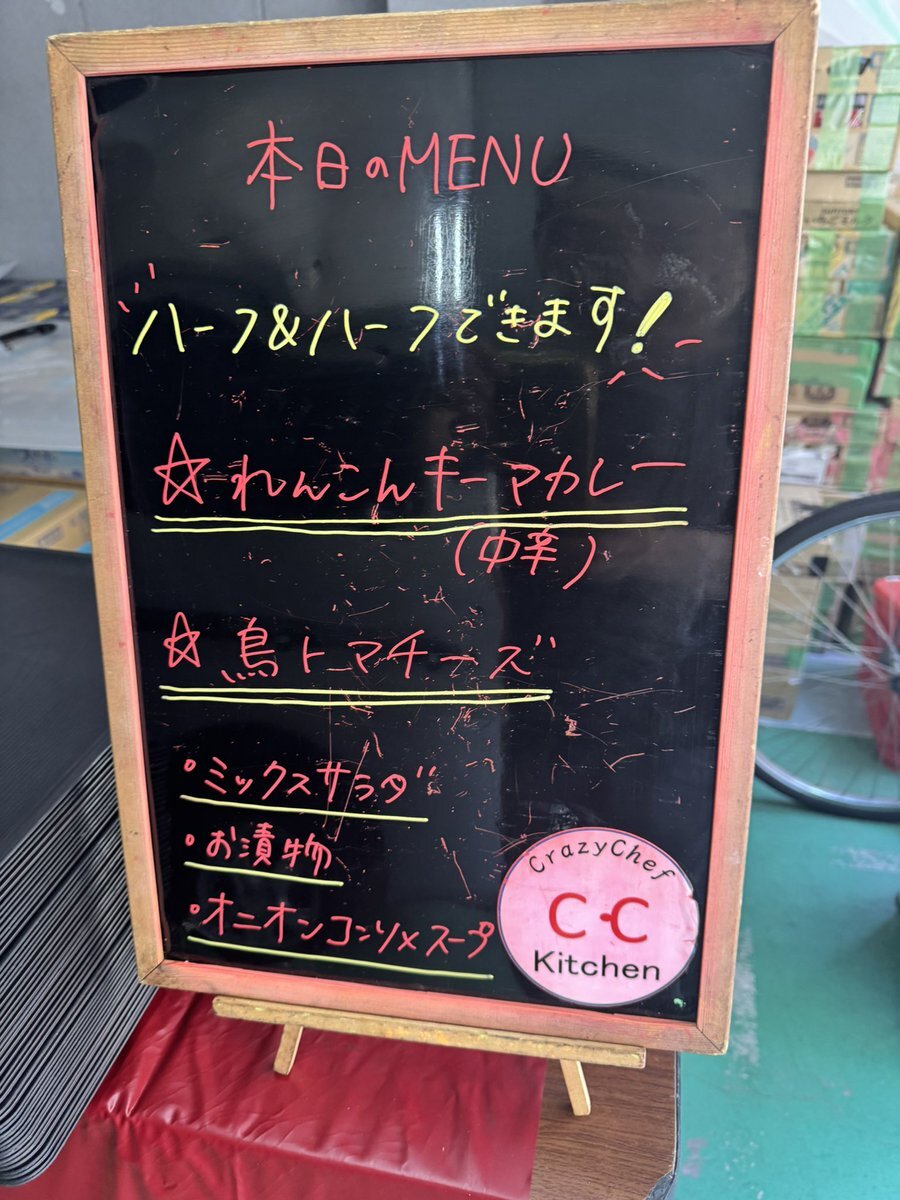 本日のMENU
ハーフ&ハーフできます!
☆れんこんキーマカレー
(中辛)
☆鳥トマチーズ
・ミックスサラダ
・お漬物
・オニオンコンソメスープ
CrazyChef
C・C
Kitchen